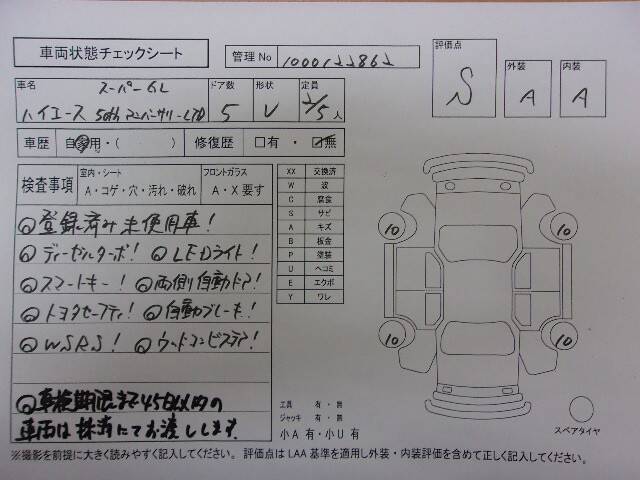 車両状態チェックシート
管理No 1000122862
評価点 S
外装 A
内装 A
車名 スーパーGL
ハイエース 50th アニバーサリーLTD
ドア数 5
形状 V
定員 2/5人
車歴 自家用・( )
修復歴 □有・☑無
検査事項
室内・シート
A・コゲ・穴・汚れ・破れ
フロントガラス
A・X 要す
◎登録済み未使用車!
◎ディーゼルターボ! ◎LEDライト!
◎スマートキー! ◎両側自動ドア!
◎トヨタセーフティ! ◎自動ブレーキ!
◎WSRS! ◎ウッドコンビステア!
◎車検期限まで45日以内の
車両は抹消にてお渡しします。
XX 交換済
W 波
C 腐食
S サビ
A キズ
B 板金
P 塗装
U ヘコミ
E エクボ
Y ワレ
10
10
10
10
工具 有・無
ジャッキ 有・無
小A 有・小U 有
スペアタイヤ
※撮影を前提に大きく読みやすく記入してください。 評価点は LAA 基準を適用し外装・内装評価を含めて正しく記入してください。